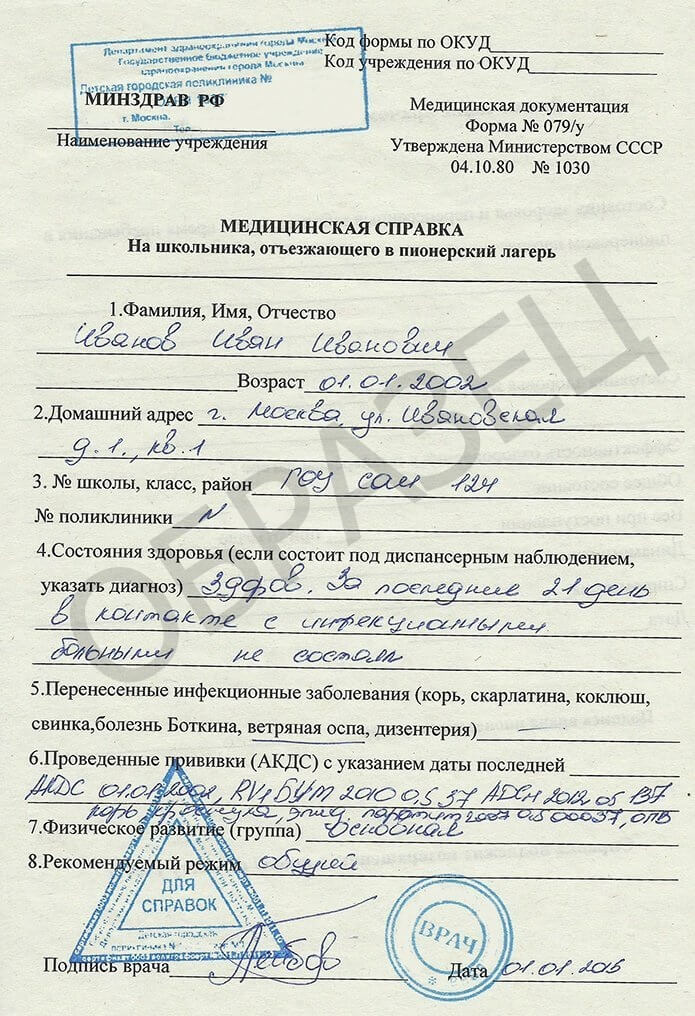 Департамент здравоохранения города Москвы
Государственное бюджетное учреждение
здравоохранения города Москвы
Детская городская поликлиника №
г. Москва.
Тел.
Код формы по ОКУД
Код учреждения по ОКУД
МИНЗДРАВ РФ
Наименование учреждения
Медицинская документация
Форма № 079/у
Утверждена Министерством СССР
04.10.80 № 1030
МЕДИЦИНСКАЯ СПРАВКА
На школьника, отъезжающего в пионерский лагерь
ОБРАЗЕЦ
1.Фамилия, Имя, Отчество
Иванов Иван Иванович
Возраст 01.01.2002
2.Домашний адрес г. Москва, ул. Ивановская
д.1., кв.1
3. № школы, класс, район ГОУ сош 124
№ поликлиники N
4.Состояния здоровья (если состоит под диспансерным наблюдением,
указать диагноз) Здоров. За последние 21 день
в контакте с инфекционными
больными не состоял
5.Перенесенные инфекционные заболевания (корь, скарлатина, коклюш,
свинка,болезнь Боткина, ветряная оспа, дизентерия)
6.Проведенные прививки (АКДС) с указанием даты последней
АКДС 01.01.2002, RV1 2010 0,5 37 АДСм 2012 05 137
корь краснуха, эпид. паротит 2007 0.5 00037, ОПВ
7.Физическое развитие (группа) основная
8.Рекомендуемый режим общий
ДЛЯ
СПРАВОК
Детская городская
поликлиника №
ВРАЧ
Подпись врача
Дата 01.01.2015